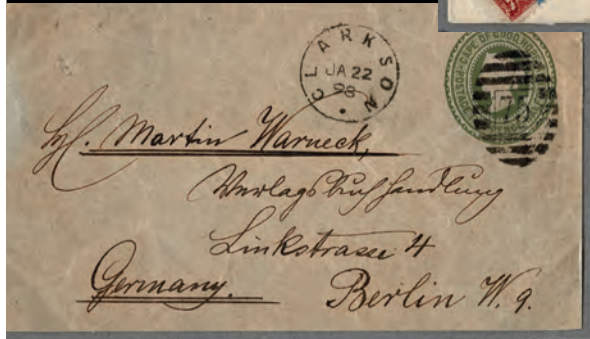 CLARKSON
JA 22
98
CAPE OF GOOD HOPE
Hl. Martin Warneck,
Verlagsbuchhandlung
Linkstrasse 4
Germany. Berlin W. 9.